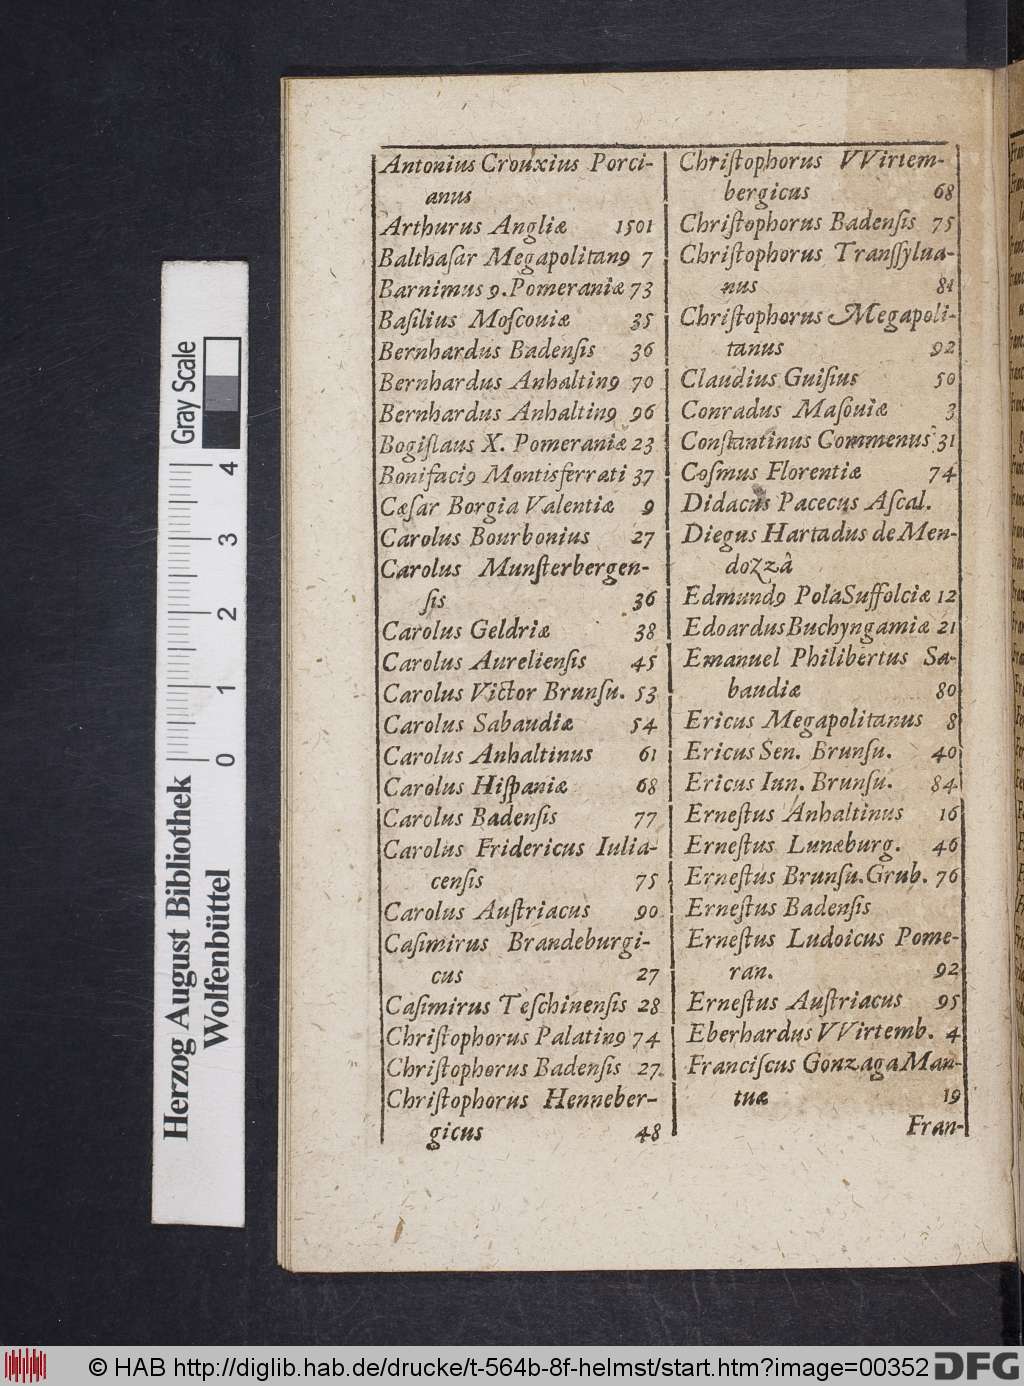 Antonius Crouxius Porci-
anus
Arthurus Angliæ 1501
Balthaſar Megapolitanꝰ 7
Barnimus 9. Pomeraniæ 73
Baſilius Moſcouiæ 35
Bernhardus Badenſis 36
Bernhardus Anhaltinꝰ 70
Bernhardus Anhaltinꝰ 96
Bogiſlaus X. Pomeraniæ 23
Bonifaciꝰ Montisferrati 37
Cæſar Borgia Valentiæ 9
Carolus Bourbonius 27
Carolus Munſterbergen-
ſis 36
Carolus Geldriæ 38
Carolus Aurelienſis 45
Carolus Victor Brunſu. 53
Carolus Sabaudiæ 54
Carolus Anhaltinus 61
Carolus Hiſpaniæ 68
Carolus Badenſis 77
Carolus Fridericus Iulia-
cenſis 75
Carolus Auſtriacus 90
Caſimirus Brandeburgi-
cus 27
Caſimirus Teſchinenſis 28
Chriſtophorus Palatinꝰ 74
Chriſtophorus Badenſis 27
Chriſtophorus Henneber-
gicus 48
Chriſtophorus VVirtem-
bergicus 68
Chriſtophorus Badenſis 75
Chriſtophorus Tranſſylua-
nus 81
Chriſtophorus Megapoli-
tanus 92
Claudius Guiſius 50
Conradus Maſouiæ 3
Conſtantinus Commenus 31
Coſmus Florentiæ 74
Didacus Pacecus Aſcal.
Diegus Hartadus de Men-
dozzâ
Edmundꝰ Pola Suffolciæ 12
Edoardus Buchyngamiæ 21
Emanuel Philibertus Sa-
baudiæ 80
Ericus Megapolitanus 8
Ericus Sen. Brunſu. 40
Ericus Iun. Brunſu. 84
Erneſtus Anhaltinus 16
Erneſtus Lunæburg. 46
Erneſtus Brunſu. Grub. 76
Erneſtus Badenſis
Erneſtus Ludoicus Pome-
ran. 92
Erneſtus Auſtriacus 95
Eberhardus VVirtemb. 4
Franciſcus Gonzaga Man-
tuæ 19
Fran-
Herzog August Bibliothek
Wolfenbüttel
Gray Scale
0 1 2 3 4
© HAB http://diglib.hab.de/drucke/t-564b-8f-helmst/start.htm?image=00352
DFG